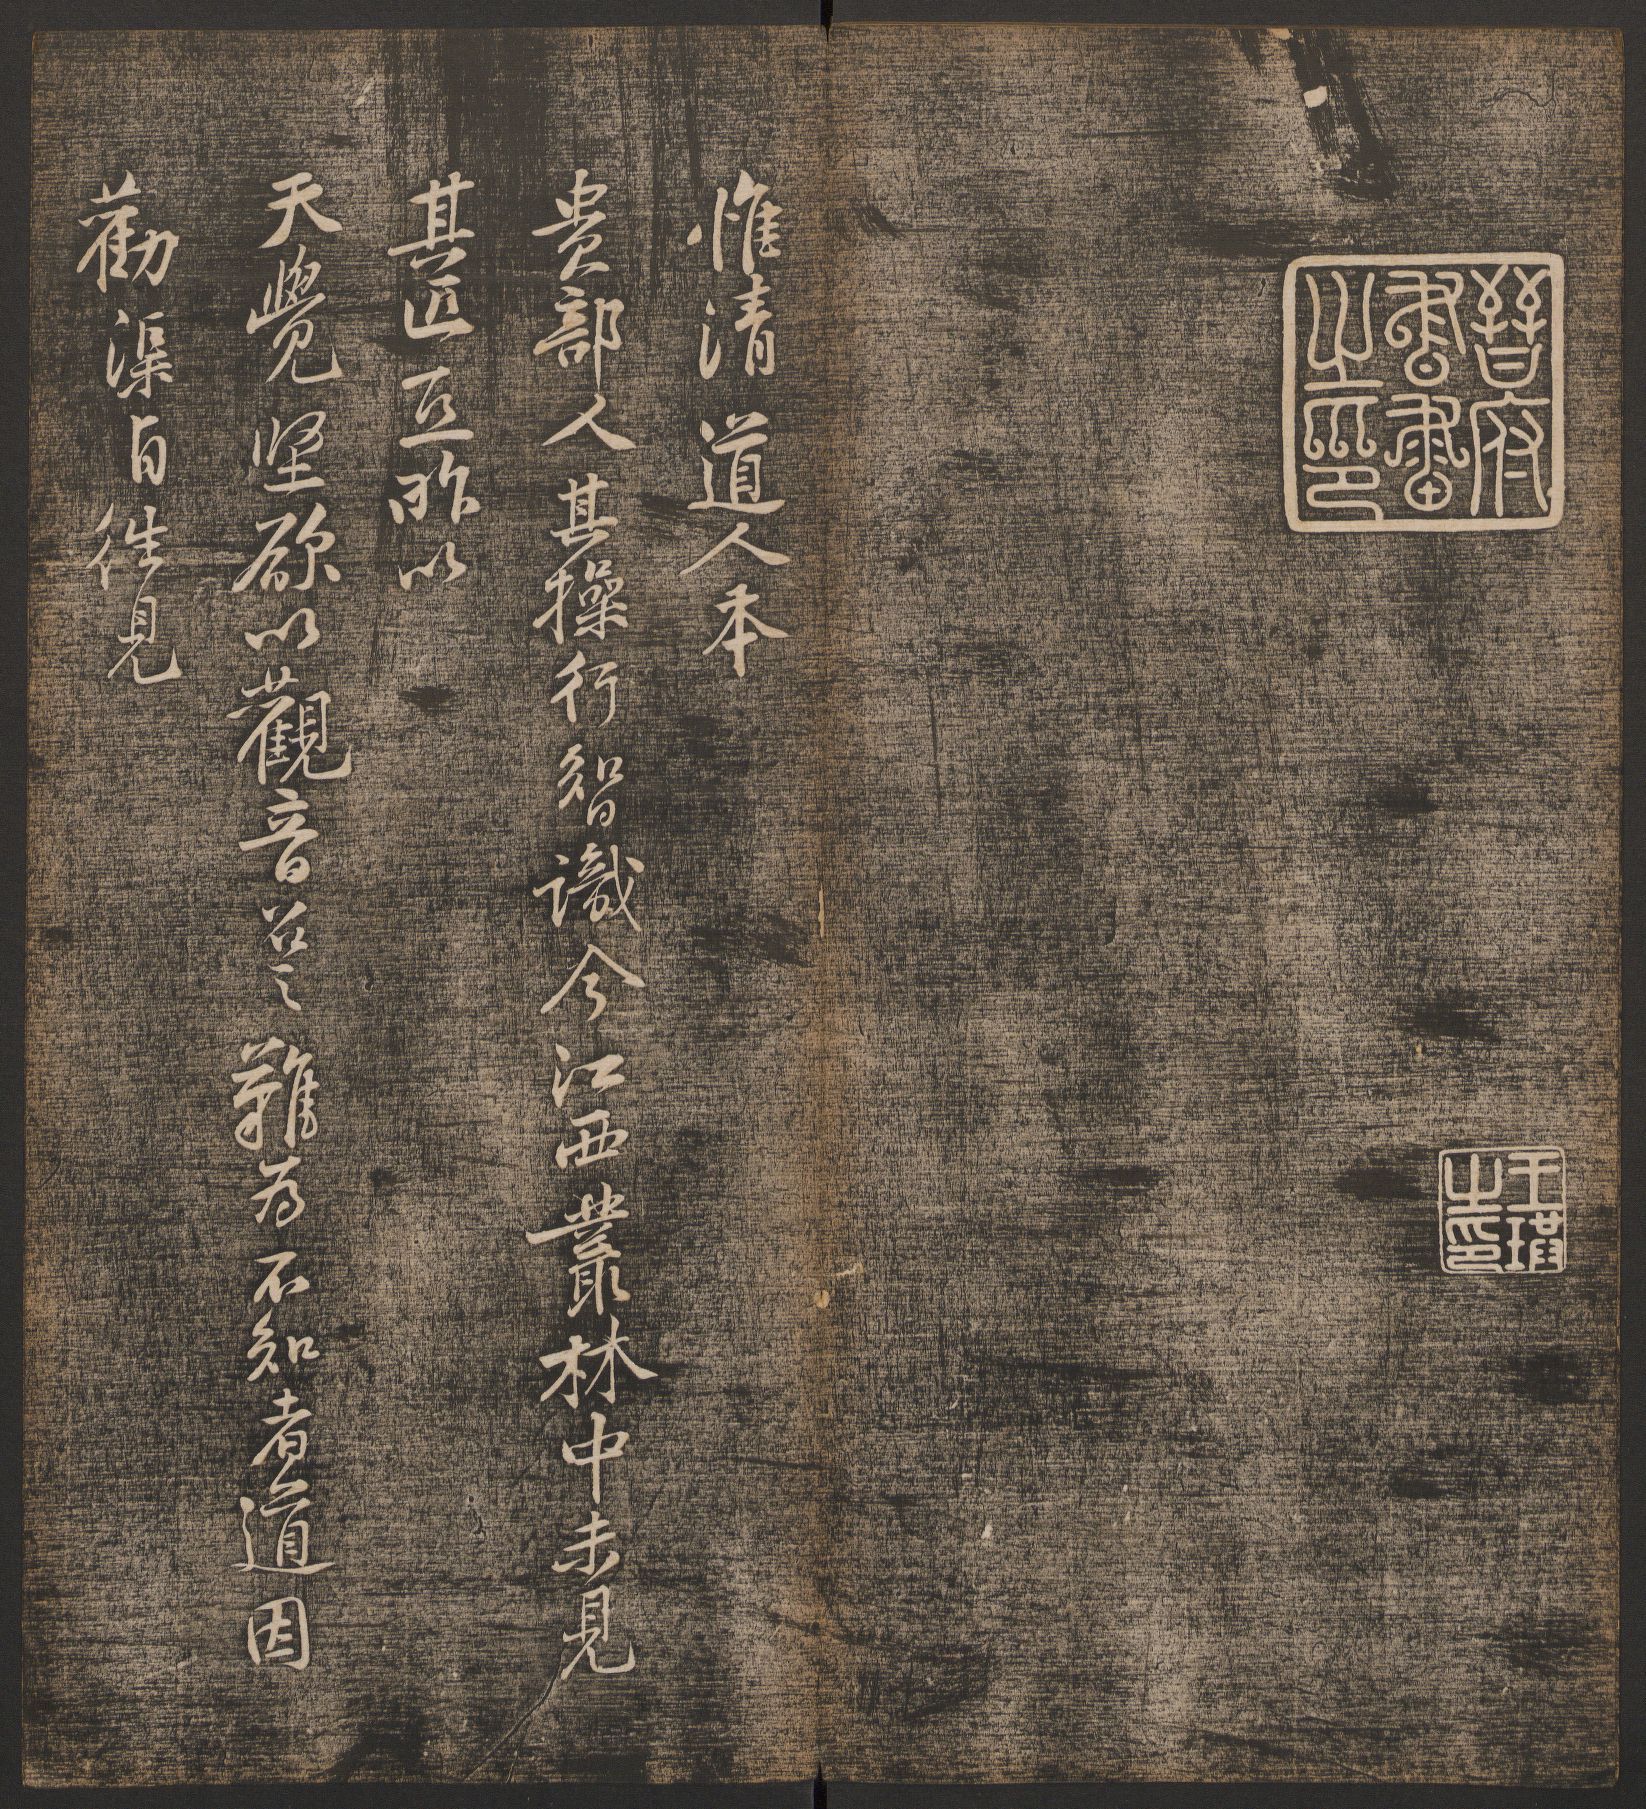 晉府
書畫
之印
王
之印
惟清道人本
貴部人其操行智識今江西叢林中未見
其匹亞昨以
天覺堅欲以觀音召之難為不知者道因
勸渠自往見